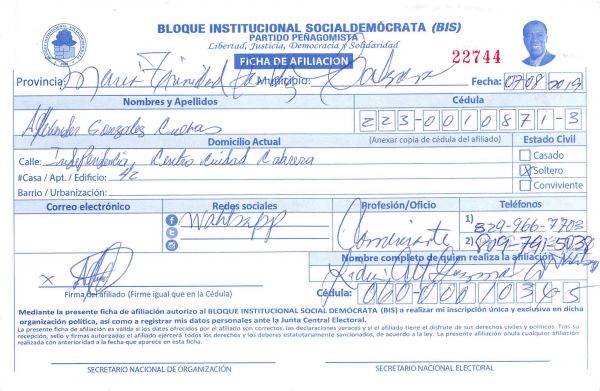 BLOQUE INSTITUCIONAL SOCIALDEMÓCRATA (BIS)
PARTIDO PEÑAGOMISTA
Libertad, Justicia, Democracia y Solidaridad
FICHA DE AFILIACION
22744
Provincia: Maria Trinidad Municipio: Cabrera Fecha: 07-08-2019
Nombres y Apellidos Cédula
Alexander Gonzalez Cuevas 223-0010871-3
Domicilio Actual (Anexar copia de cédula del afiliado) Estado Civil
Calle: Independencia, Centro Ciudad Cabrera Casado
#Casa / Apt. / Edificio: 42 X Soltero
Barrio / Urbanización: Conviviente
Correo electrónico Redes sociales Profesión/Oficio Teléfonos
Wahtsapp Comerciante 1) 829-966-7703
2) 809-791-5038
Nombre completo de quien realiza la afiliación
x
Firma del afiliado (Firme igual que en la Cédula) Cédula: 060-0001034-5
Mediante la presente ficha de afiliación autorizo al BLOQUE INSTITUCIONAL SOCIAL DEMÓCRATA (BIS) a realizar mi inscripción única y exclusiva en dicha
organización política, así como a registrar mis datos personales ante la Junta Central Electoral.
La presente ficha de afiliación es válida si los datos ofrecidos por el afiliado son correctos, las declaraciones veraces y si el afiliado tiene el disfrute de sus derechos civiles y políticos. Tras su
recepción, sello y firmas autorizadas el afiliado ejercerá todos los derechos y los deberes estatutariamente sancionados, de acuerdo a la ley. La presente afiliación anula cualquier afiliación
realizada con anterioridad a la fecha que aparece en esta ficha.
SECRETARIO NACIONAL DE ORGANIZACIÓN SECRETARIO NACIONAL ELECTORAL